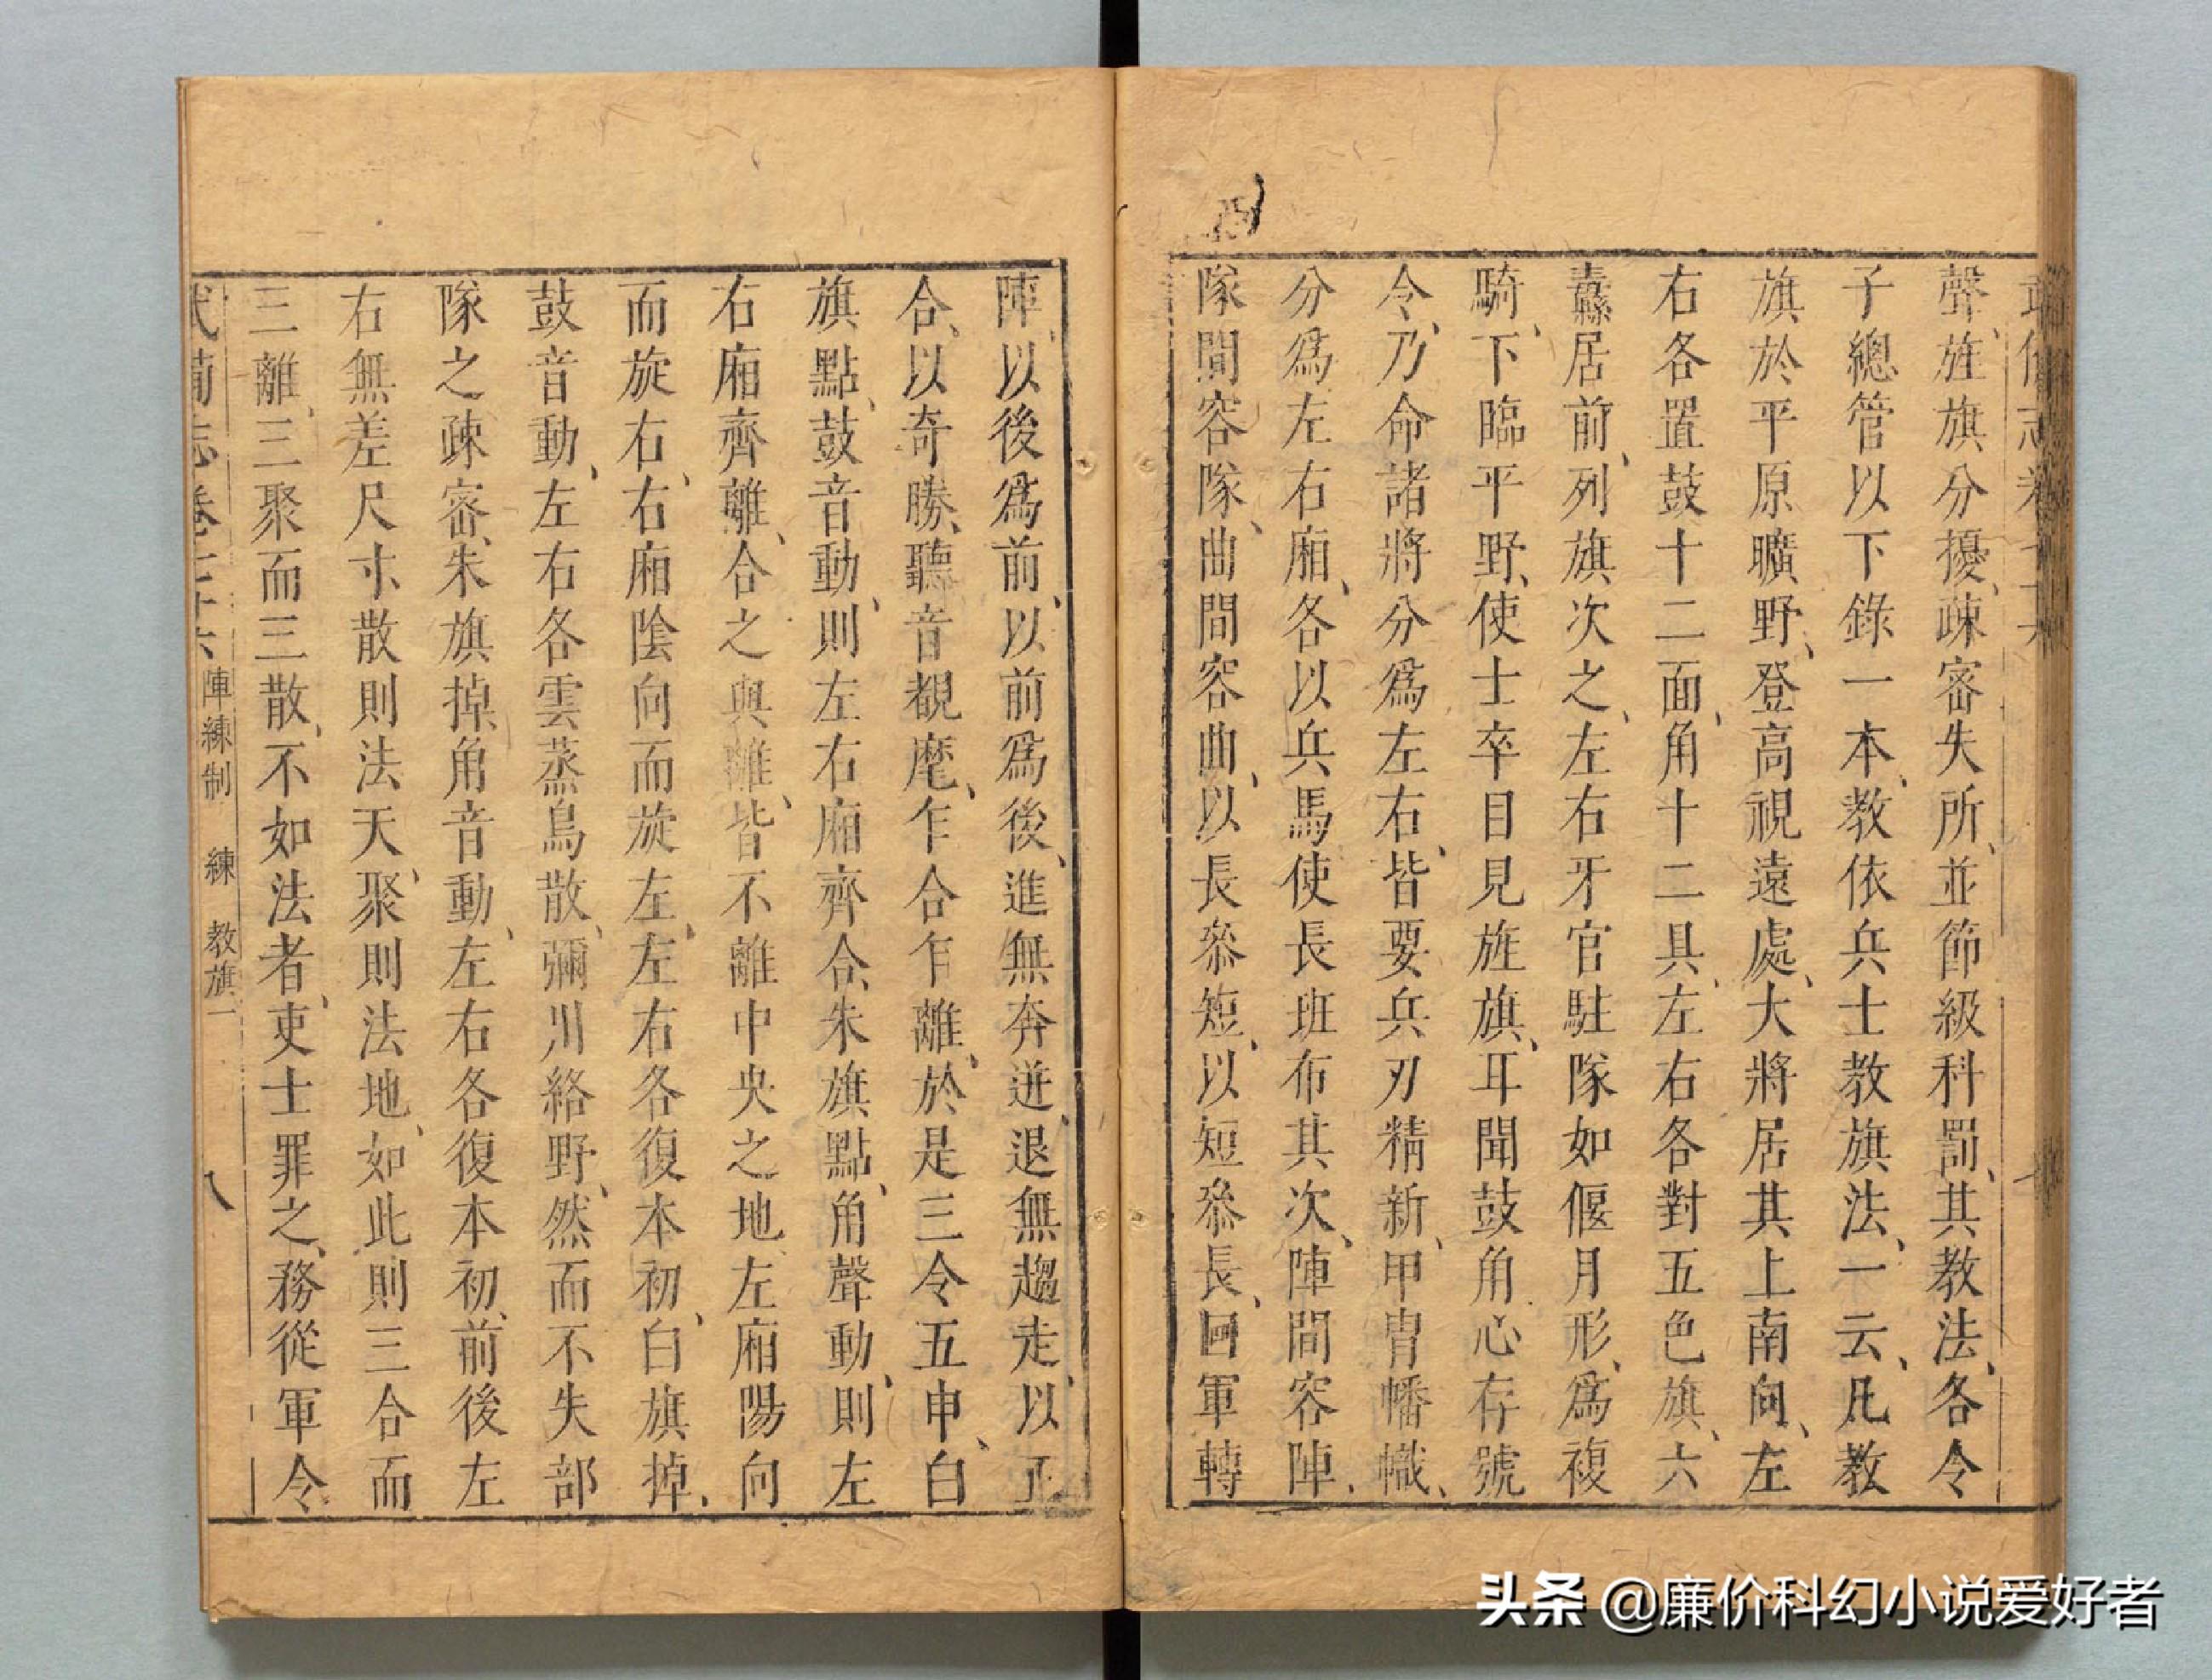 聲、旌旗分擾、疎密失所、並節級科罰、其教法、各令
子總管以下錄一本、教依兵士教旗法、一云、凡教
旗於平原曠野、登高視遠處、大將居其上南向、左
右各置鼓十二面、角十二具、左右各對五色旗、六
纛居前、列旗次之、左右牙官駐隊如偃月形、爲複
騎、下臨平野、使士卒目見旌旗、耳聞鼓角心存號
令、乃命諸將分爲左右、皆要兵刃精新、甲冑幡幟、
分爲左右廂、各以兵馬使長班布其次、陣間容陣、
隊間容隊、曲間容曲、以長叅短、以短叅長、回軍轉
陣、以後爲前、以前爲後、進無奔迸、退無趨走、以正
合、以奇勝、聽音覩麾、乍合乍離、於是三令五申、白
旗點、鼓音動、則左右廂齊合、朱旗點、角聲動、則左
右廂齊離、合之與離、皆不離中央之地左廂陽向
而旋右、右廂陰向而旋左、左右各復本初、白旗掉、
鼓音動、左右各雲蒸鳥散、彌川絡野、然而不失部
隊之疎密、朱旗掉、角音動、左右各復本初、前後左
右無差尺寸、散則法天、聚則法地、如此則三合而
三離、三聚而三散、不如法者、吏士罪之、務從軍令
陣練制 練 教旗一
八
头条 @廉价科幻小说爱好者